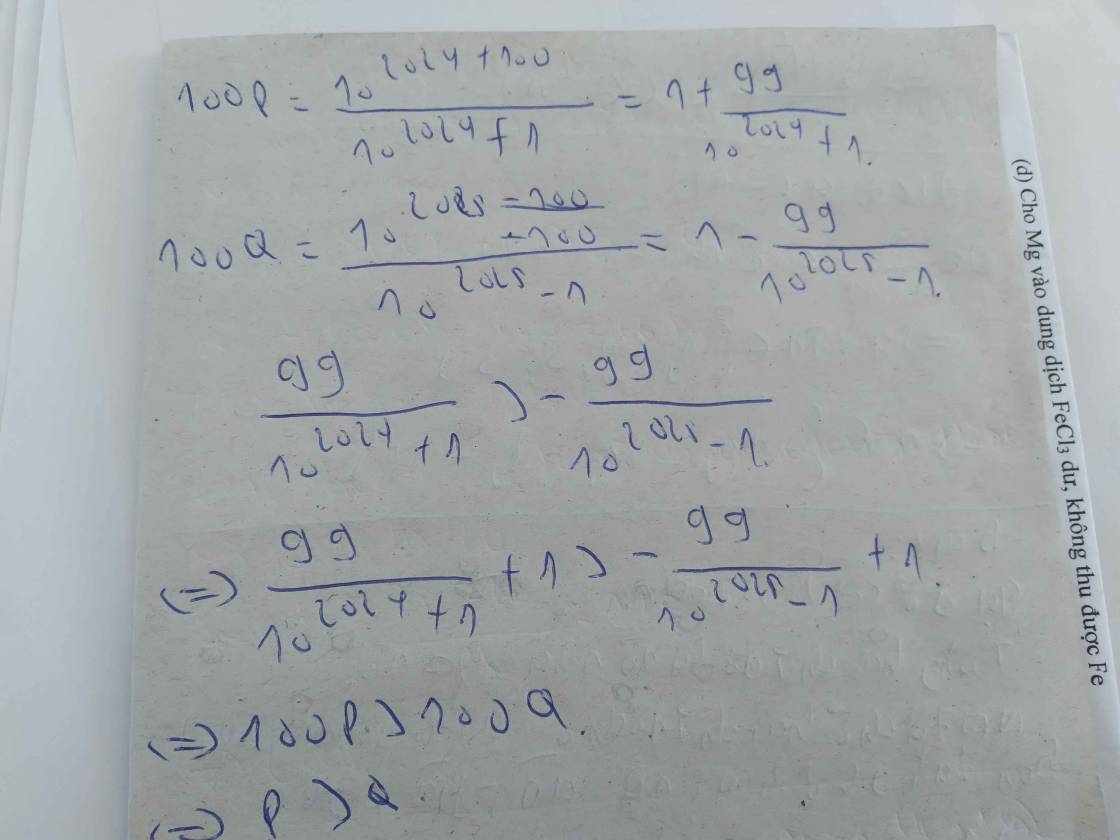 100P = \frac{10^{2024 + 100}}{10^{2024} + 1} = 1 + \frac{99}{10^{2024} + 1}.
100Q = \frac{10^{2025} - 100}{10^{2025} - 1} = 1 - \frac{99}{10^{2025} - 1}.
\frac{99}{10^{2024} + 1} > - \frac{99}{10^{2025} - 1}.
(=) \frac{99}{10^{2024} + 1} + 1 > - \frac{99}{10^{2025} - 1} + 1.
(=) 100P > 100Q.
(=) P > Q.
(d) Cho Mg vào dung dịch FeCl₃ dư, không thu được Fe